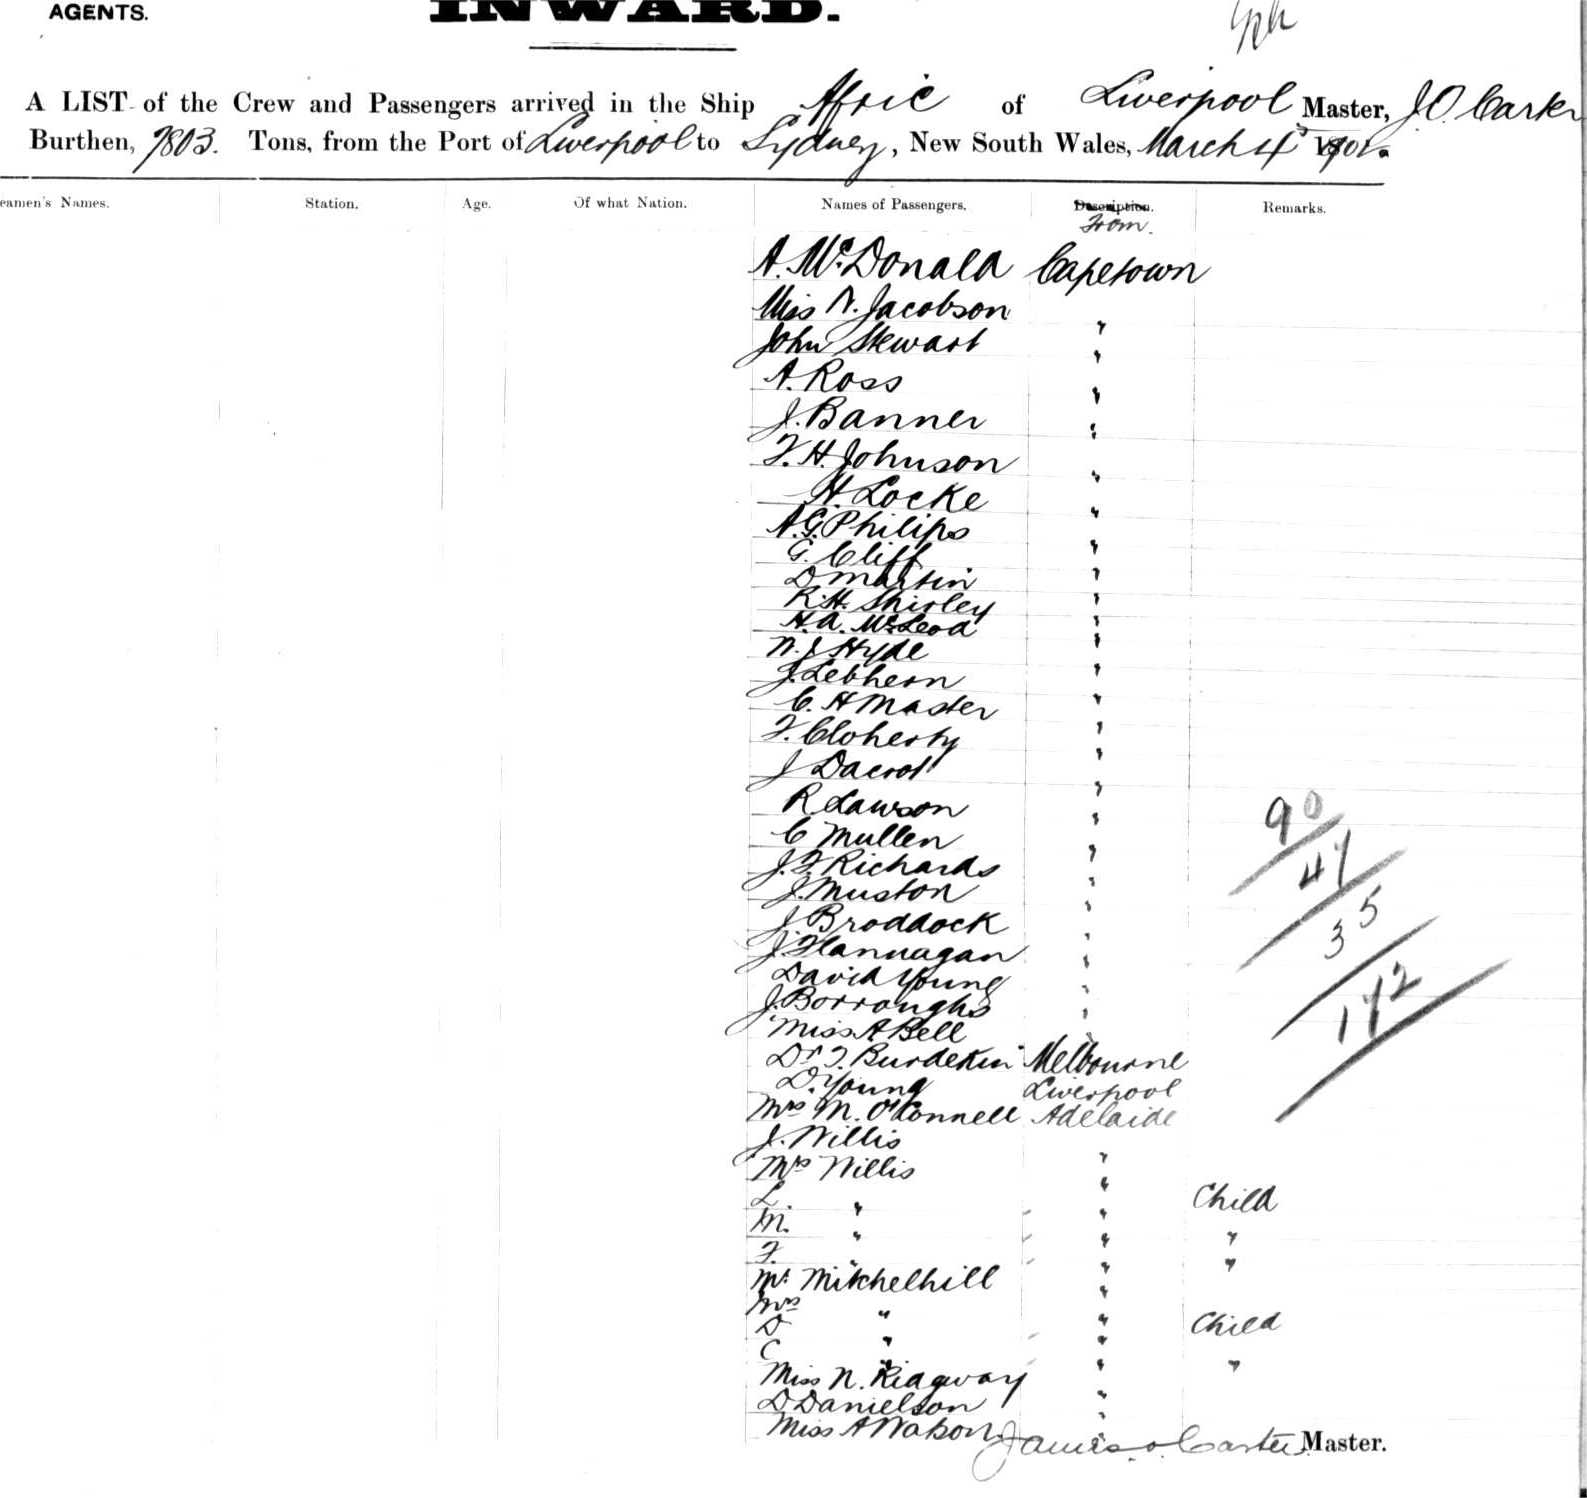 AGENTS.
INWARD.
A LIST of the Crew and Passengers arrived in the Ship Afric of Liverpool Master, J.O. Carter
Burthen, 7803. Tons, from the Port of Liverpool to Sydney, New South Wales, March 4
eamen's Names. Station. Age. Of what Nation. Names of Passengers. Description. Remarks.
From.
A. McDonald Capetown
Miss N. Jacobson "
John Stewart "
A. Ross "
J. Banner "
F. H. Johnson "
H. Locke "
A.G. Philips "
G. Cliff "
D Martin "
R.H. Shirley "
H.A. McLeod "
N. J Hyde "
J. "
C. H Master "
F. Cloherty "
J "
R. Lawson "
C Mullen "
J. F. Richards "
J. Muston "
J. Broddock "
J. Flannagan "
David Young "
J. Borroughs "
Miss A Bell "
Dr F. Burdekin Melbourne
D. Young Liverpool
Mrs M. O'Connell Adelaide
J. Willis "
Mrs Willis "
L " " Child
M. " " "
F. " " "
Mr Mitchelhill "
Mrs " "
D " " Child
C " " "
Miss N. Ridgway "
D Danielson "
Miss A Watson "
90
47
35
172
James O Carter Master.